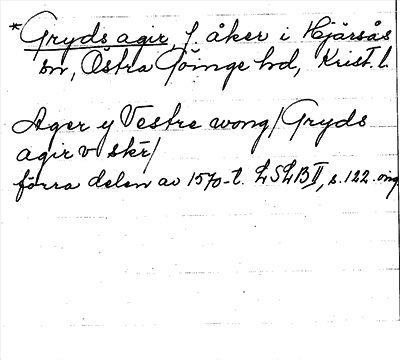 *Gryds agir f. åker i Hjärsås
sn, Östra Göinge hd, Krist. l.
Ager y Vestre wong/Gryds
agir v skr/
förra delen av 1570-t. LSLB II, s. 122. ong